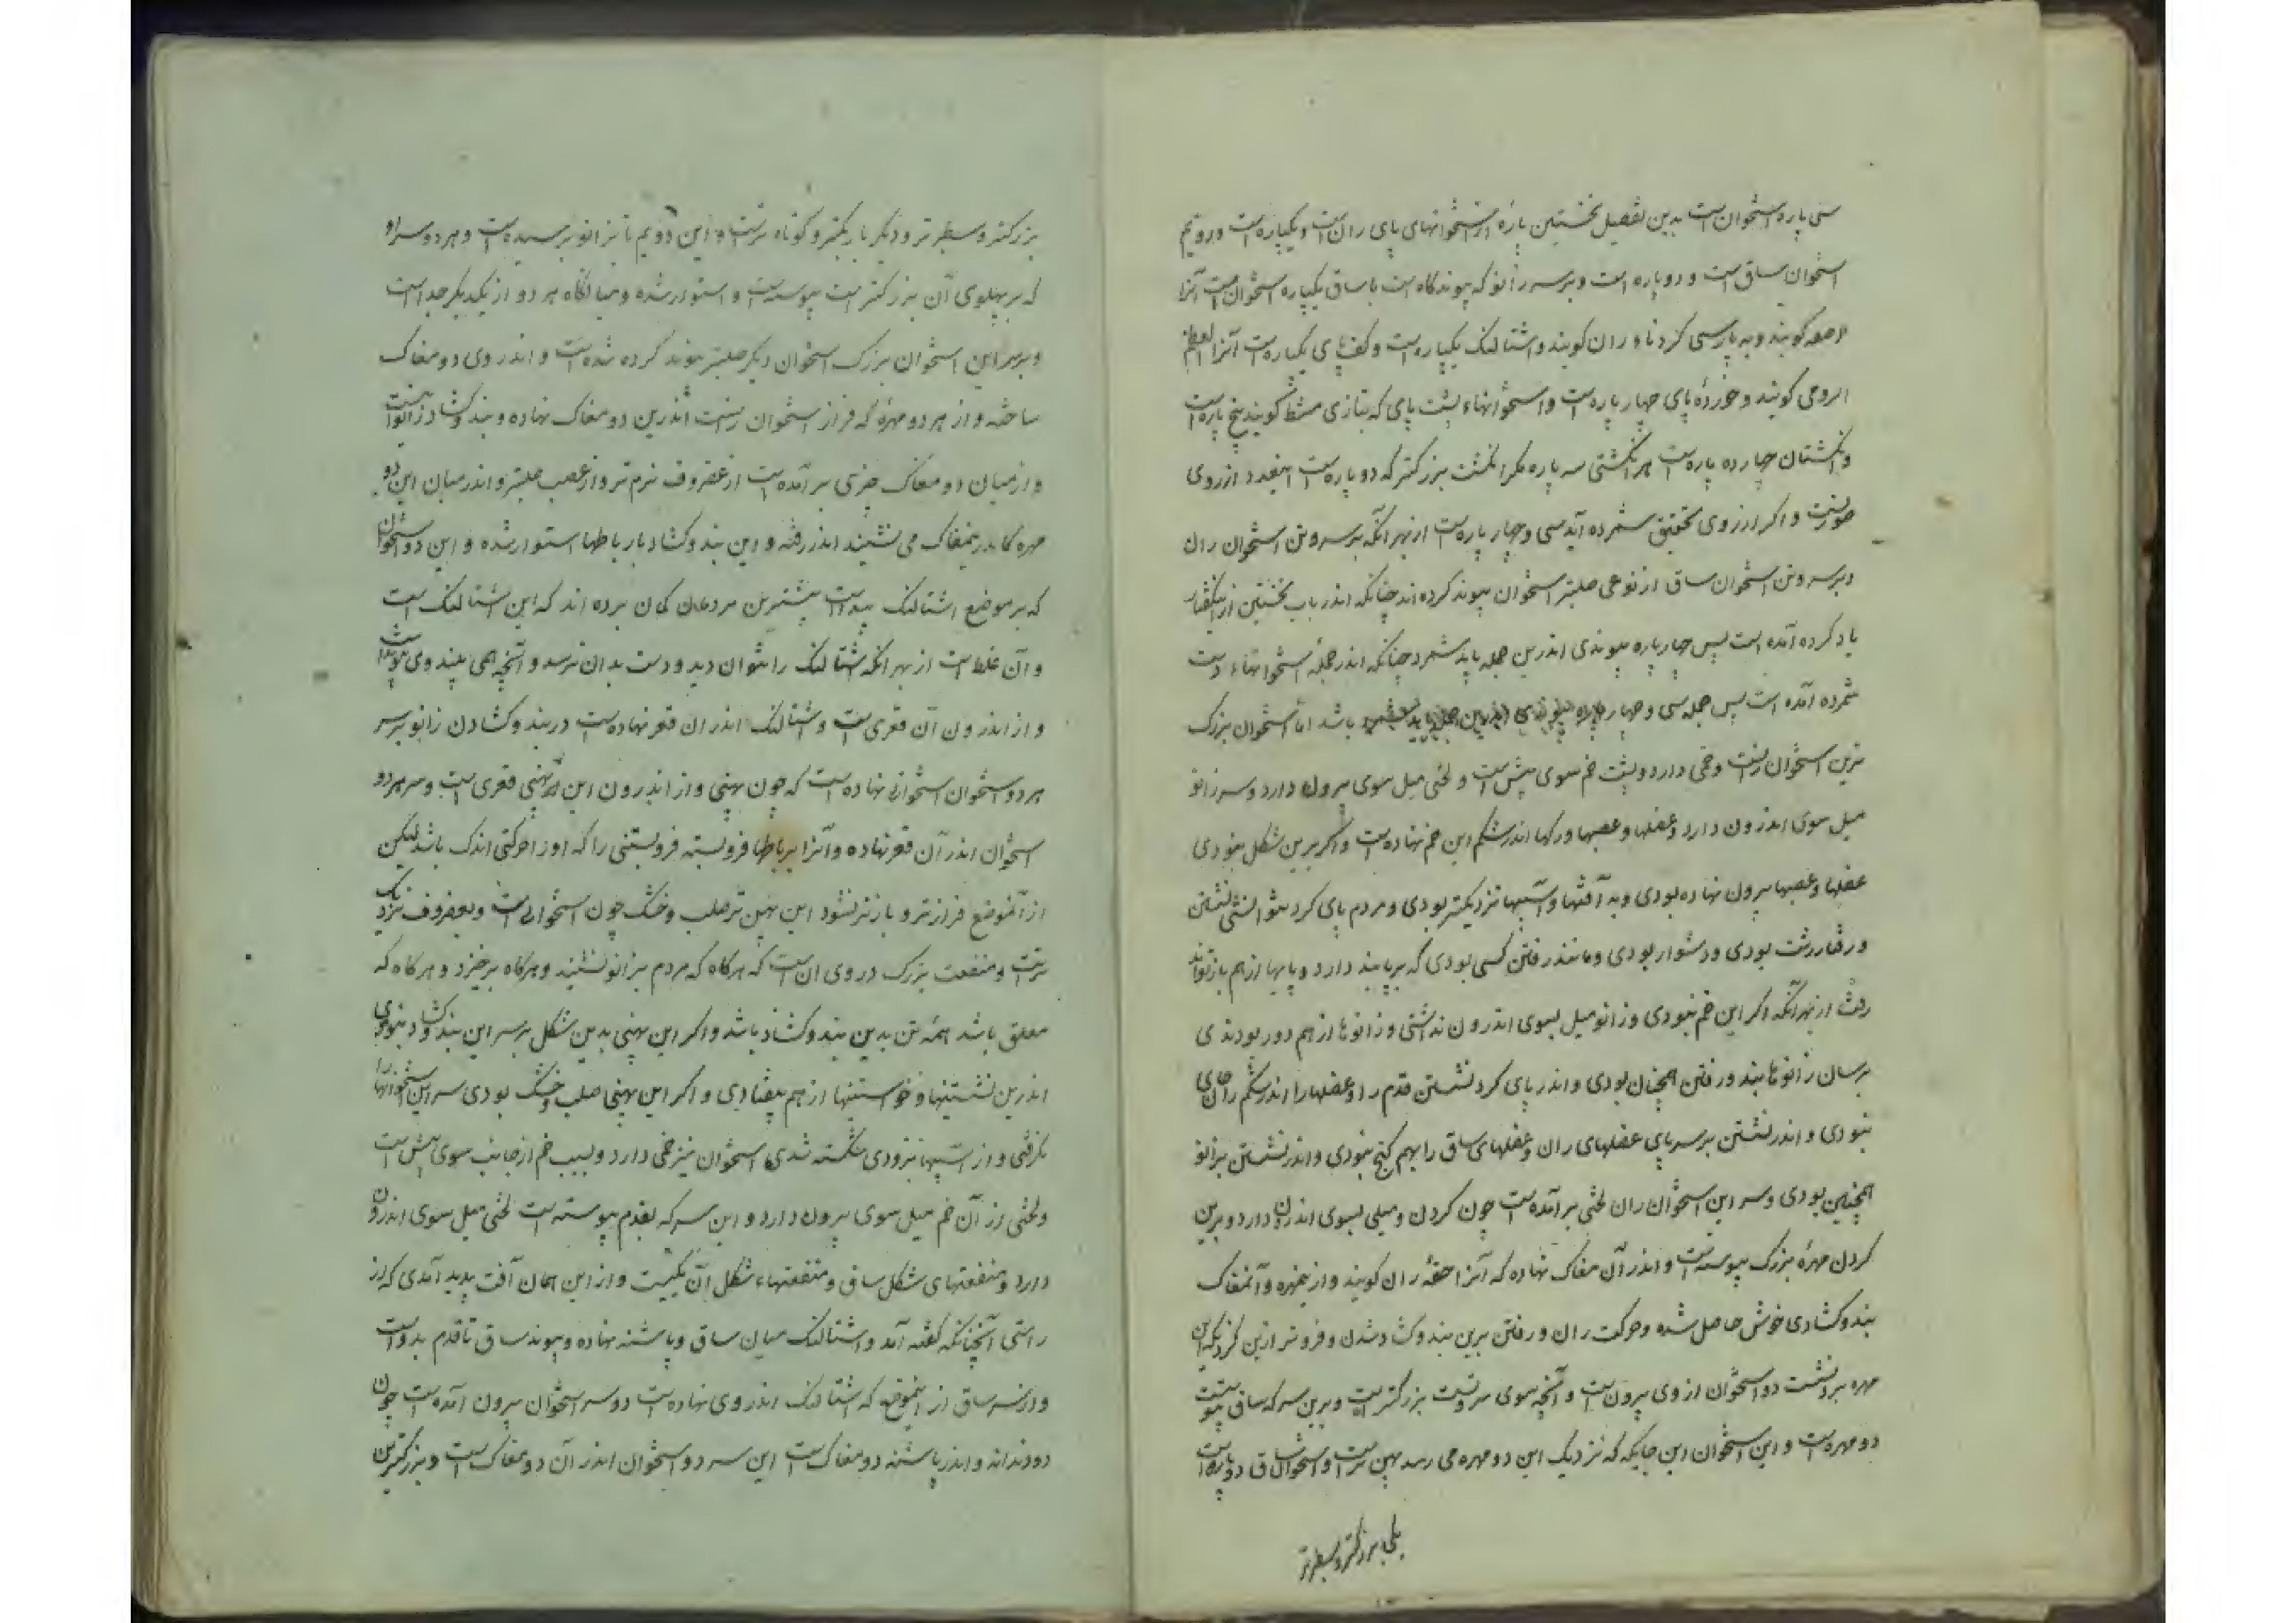 سی پاره استخوان است بدین تفصیل نخستین پاره از استخوانهای پای ران است و یکپاره است و دویم
استخوان ساق است و دو پاره است و بر سر زانو که پیوندگاه است با ساق یکپاره استخوان است آنرا
کویند و به پارسی کردناء ران کویند و اشتالنک یکپاره است و کف پای یکپاره است آنرا العظم
کویند و خوردهٔ پای چهار پاره است و استخوانهاء پشت پای که بتازی مشط کویند پنج پاره است
و انکشتان چهارده پاره است هر انکشتی سه پاره مکر انکشت بزرکتر که دو پاره است اینعدد از روی
صورتست و اکر از روی تحقیق شمرده آید سی و چهار پاره است از بهر آنکه بر سر و تن استخوان ران
و بر سر و تن استخوان ساق از نوعی صلبتر استخوان پیوند کرده اند چنانکه اندر باب نخستین از اینکفتار
یاد کرده آمده است پس چهار پاره پیوندی اندرین جمله باید شمرد چنانکه اندر جملهٔ استخوانهاء دست
شمرده آمده است پس جمله سی و چهار پاره باشد اما استخوان بزرک
ترین استخوان رانست و خمی دارد و پشت خم سوی پیش است و لختی میل سوی بیرون دارد و سر زانو
میل سوی اندرون دارد و عضلها و عصبها و رکها اندر شکم این خم نهاده است و اکر برین شکل نبودی
عضلها و عصبها بیرون نهاده بودی و به آفتها و آسیبها نزدیکتر بودی و مردم پای کرد نتوانستی نشستن
و رفتار زشت بودی و دشوار بودی و مانند رفتن کسی بودی که بر پا بند دارد و پایها از هم باز نتواند
رفت از بهر آنکه اکر این خم نبودی و زانو میل بسوی اندرون نداشتی و زانوها از هم دور بودندی
برسان زانوها بند و رفتن همچنان بودی و اندر پای کرد نشستن قدم را و عضلها را اندر شکم ران جای
نبودی و اندر نشستن بر سر پای عضلهای ران و عضلهای ساق را بهم کنج نبودی و اندر نشستن بزانو
همچنین بودی و سر این استخوان ران لختی برآمده است چون کردن و میلی بسوی اندرون دارد و برین
کردن مهرهٔ بزرک پیوسته است و اندر آن مغاک نهاده که آنرا حقهٔ ران کویند و ازینمهره و آنمغاک
بند و کشادی خوش حاصل شده و حرکت ران و رفتن برین بند و کشاد شدن و فروتر ازین کردیکه این
مهره بر دنشست دو استخوان از وی بیرون است و آنچه سوی سرونست بزرکتر است و برین سر که ساق پیوستست
دو مهره است و این استخوان این جایکه که نزدیک این دو مهره می رسد پهن تر است و استخوان ساق دو پاره است
یکی بزرکتر و سطبرتر
بزرکتر و سطبرتر و دیکر باریکتر و کوتاه ترست و این دویم تا بزانو برسیده است و هر دو سر او
که بر پهلوی آن بزرکتر است پیوسته است و استوار شده و میانکاه هر دو از یکدیکر جداست
و بر سر این استخوان بزرک استخوان دیکر صلبتر پیوند کرده شده است و اندر وی دو مغاک
ساخته و از هر دو مهره که فراز استخوان رانست اندرین دو مغاک نهاده و بند و کشاد زانو آنست
و از میان دو مغاک چیزی برآمده است از غضروف نرم تر و از عصب صلبتر و اندر میان این دو
مهره کاندرینمغاک می نشیند اندر رفته و این بند و کشاد بار باطها استوار شده و این دو استخوان
که بر موضع اشتالنک پیداست بیشترین مردمان کمان برده اند که این اشتالنک است
و آن غلط است از بهر آنکه اشتالنک را نتوان دید و دست بدان نرسد و آنچه همی بینند
و از اندرون آن قعریست و اشتالنک اندران قعر نهاده است در بند و کشادن زانو بر سر
هر دو استخوان استخوانی نهاده است که چون پهنی و از اندرون این پهنی قعری است و سر هر دو
استخوان اندر آن قعر نهاده و آنرا برباطها فروبسته فروبستنی را که او را حرکتی اندک باشد لیکن
از آنموضع فرازتر و بازتر نشود این پهن تر صلب و خشک چون استخوانی است و بغضروف نزدیک
ترست و منفعت بزرک در وی آن است که هرکاه که مردم بزانو نشیند و هرکاه برخیزد و هرکاه که
معلق باشد همه تن بدین بند و کشاد باشد و اکر این پهنی بدین شکل بر سر این بند کشاد نبودی
اندرین نشستنها و خواستنها از هم بیفتادی و اکر این پهنی صلب و خشک بودی سر این استخوانها را
نکرفتی و از آسیبها بزودی شکسته شدی استخوان نیز خمی دارد و لیب خم از جانب سوی پیش است
و لختی از آن خم میل سوی بیرون دارد و این سر که بقدم پیوسته است لختی میل سوی اندرون
دارد و منفعتهای شکل ساق و منفعتهاء شکل ران یکیست و از این همان آفت پدید آمدی که از
راستی آنچنانکه کفته آمد و اشتالنک میان ساق و پاشنه نهاده و پیوند ساق تا قدم بدوست
و از سر ساق از اینموضع که اشتالنک اندر وی نهاده است دو سر استخوان بیرون آمده است چون
دو دندانه و اندر پاشنه دو مغاک است این سر دو استخوان اندر آن دو مغاک است و بزرکترین